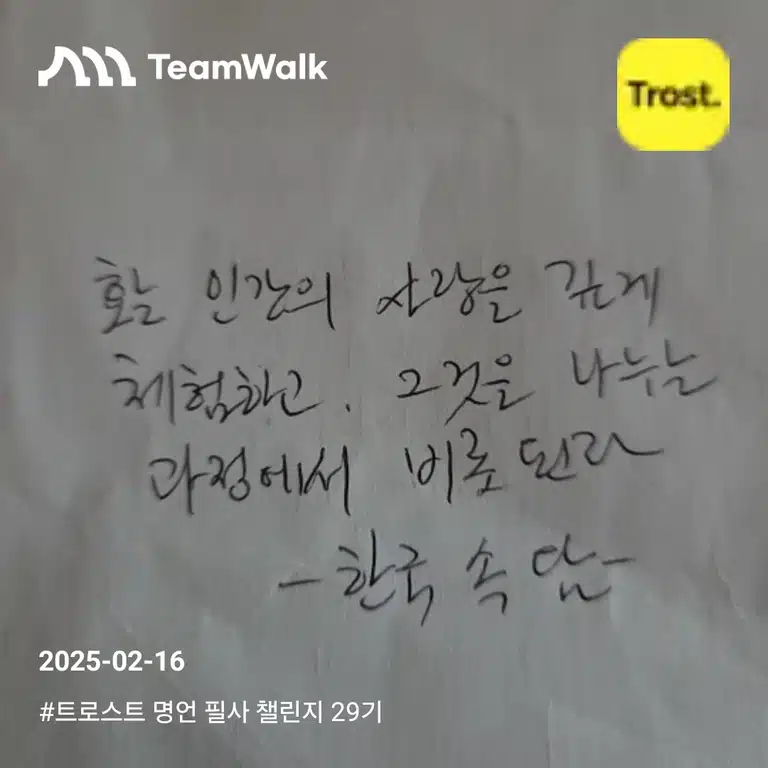 TeamWalk
Trost.
인간의 사랑을 깊게
체험하고, 그것을 나누는
과정에서 비롯된다
-한국 속담-
2025-02-16
#트로스트 명언 필사 챌린지 29기